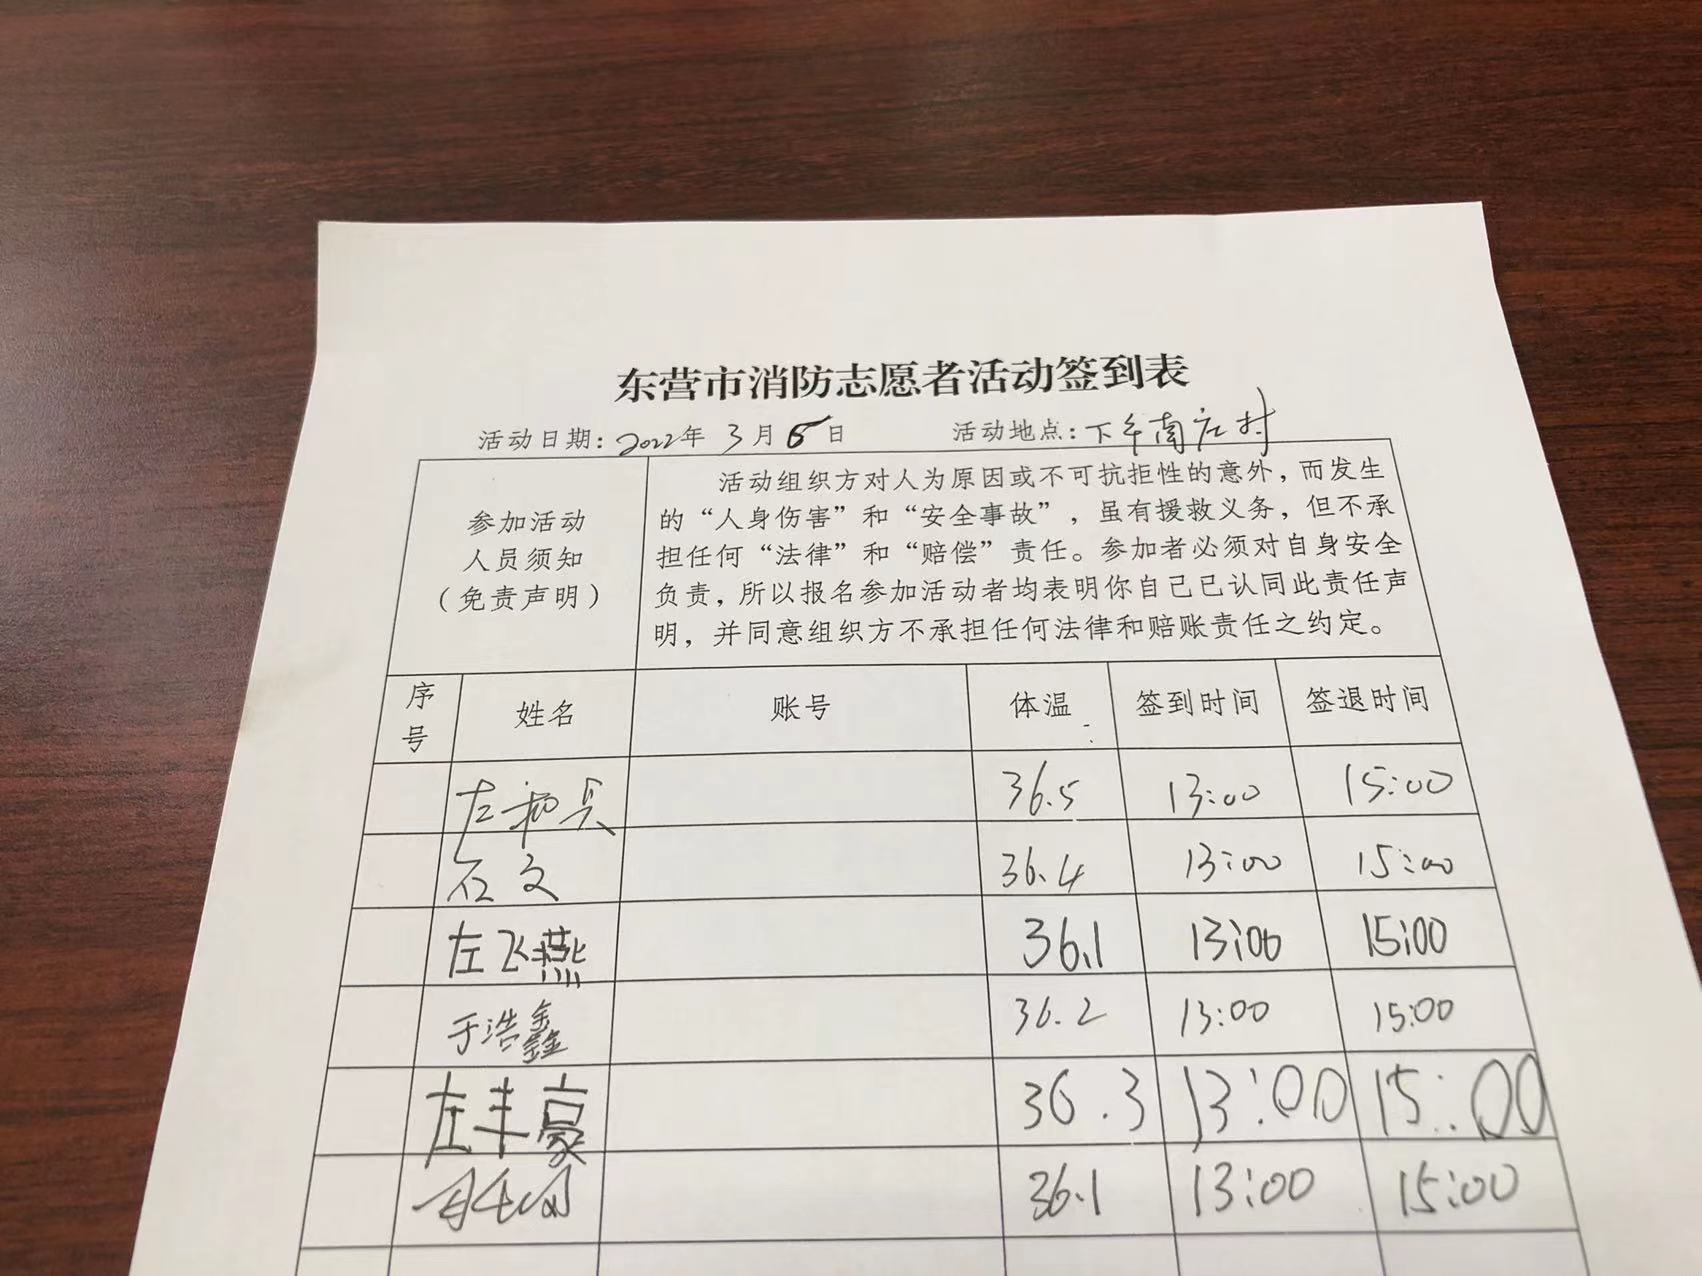 东营市消防志愿者活动签到表
活动日期：2022年 3月 6日 活动地点：下午南庄村
参加活动
人员须知
（免责声明）
活动组织方对人为原因或不可抗拒性的意外，而发生
的“人身伤害”和“安全事故”，虽有援救义务，但不承
担任何“法律”和“赔偿”责任。参加者必须对自身安全
负责，所以报名参加活动者均表明你自己已认同此责任声
明，并同意组织方不承担任何法律和赔账责任之约定。
序号 姓名 账号 体温 签到时间 签退时间
左 36.5 13:00 15:00
石文 36.4 13:00 15:00
左飞燕 36.1 13:00 15:00
于浩鑫 36.2 13:00 15:00
左丰豪 36.3 13:00 15:00
36.1 13:00 15:00